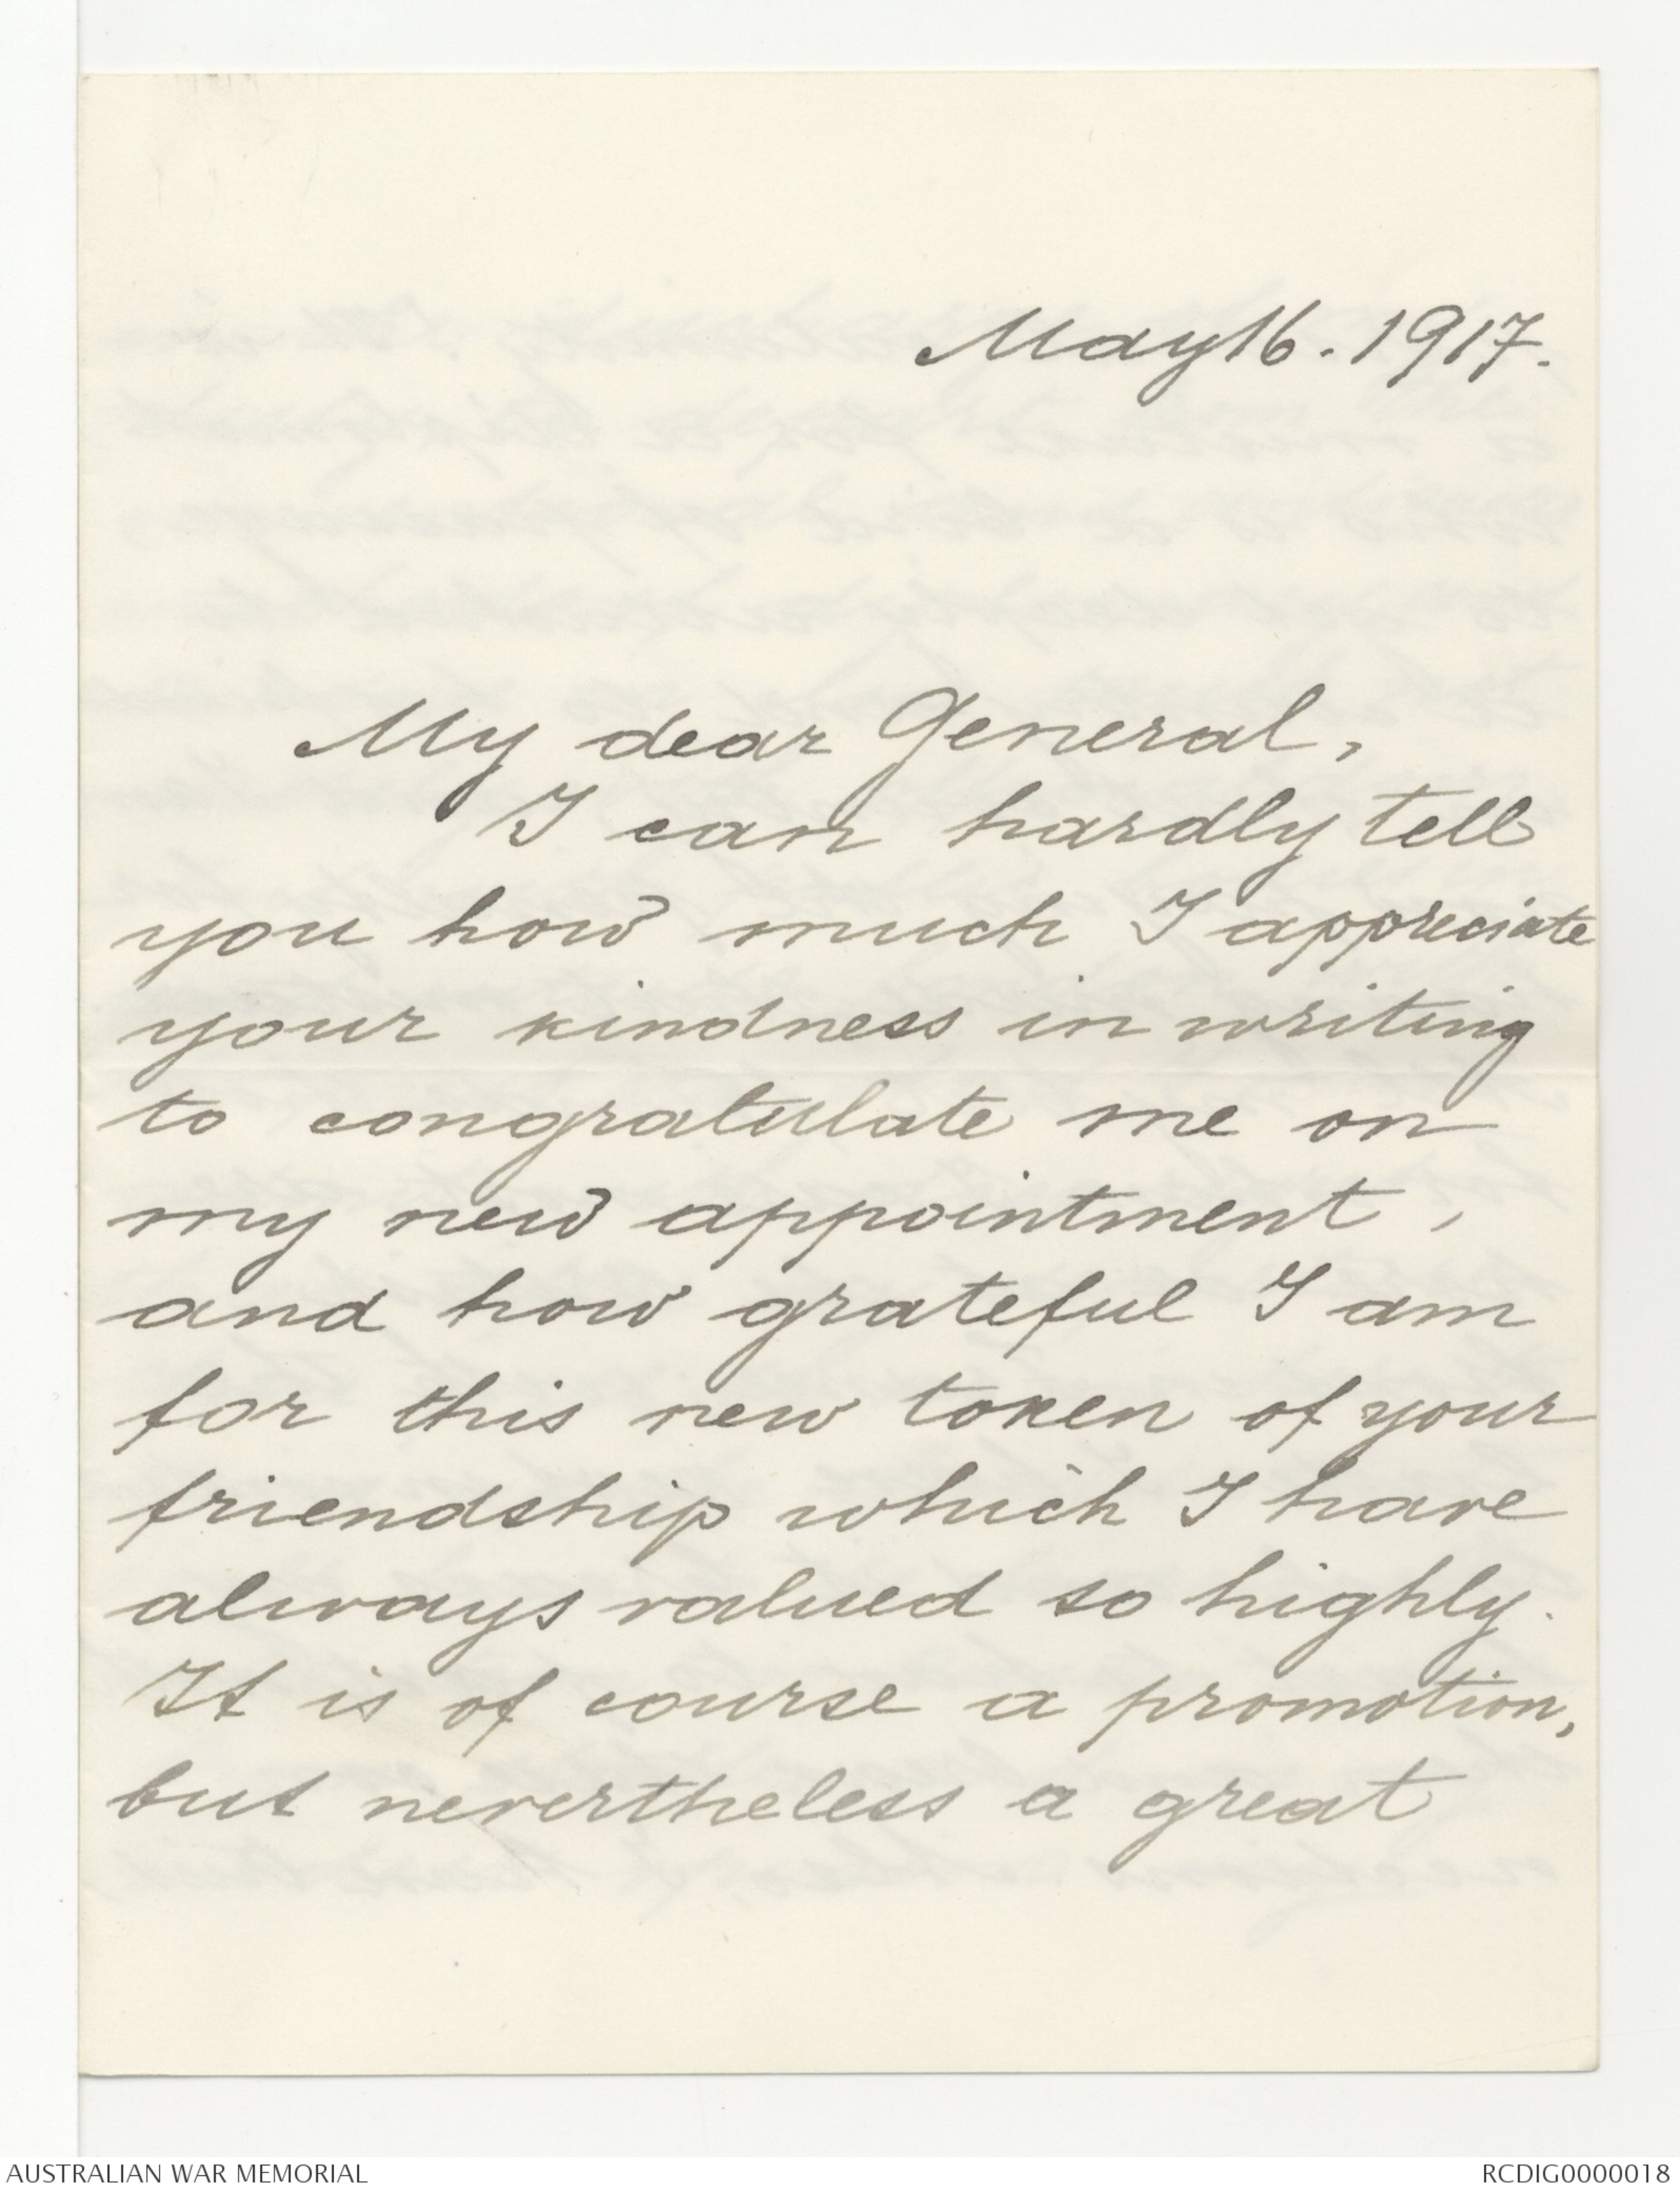 May 16. 1917.
My dear General,
I can hardly tell
you how much I appreciate
your kindness in writing
to congratulate me on
my new appointment,
and how grateful I am
for this new token of your
friendship which I have
always valued so highly.
It is of course a promotion,
but nevertheless a great
AUSTRALIAN WAR MEMORIAL
RCDIG0000018